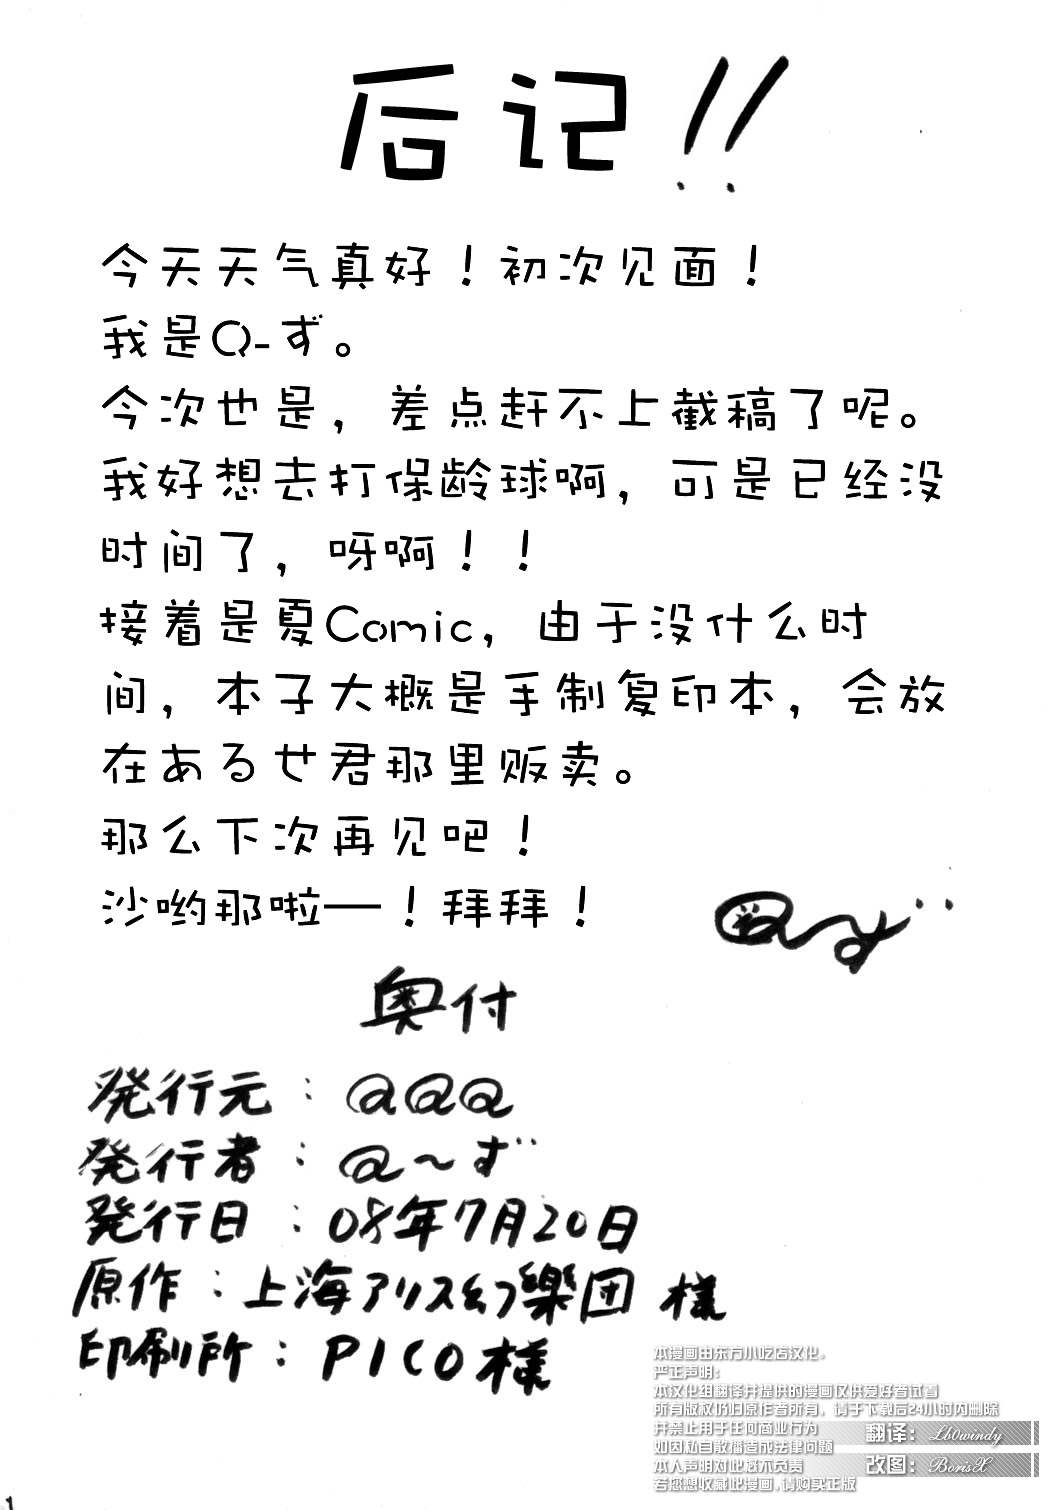 后记!!
今天天气真好！初次见面！
我是Q-ず。
今次也是，差点赶不上截稿了呢。
我好想去打保龄球啊，可是已经没
时间了，呀啊！！
接着是夏Comic，由于没什么时
间，本子大概是手制复印本，会放
在あるせ君那里贩卖。
那么下次再见吧！
沙哟那啦——！拜拜！
@〜ず
奥付
発行元：@@@
発行者：@〜ず
発行日：08年7月20日
原作：上海アリス幻樂団 様
印刷所：PICO様
本漫画由东方小吃店汉化。
严正声明：
本汉化组翻译并提供的漫画仅供爱好者试看
所有版权仍归原作者所有，请于下载后24小时内删除
并禁止用于任何商业行为
如因私自散播造成法律问题
本人声明对此概不负责
若您想收藏此漫画,请购买正版
翻译：Lb0windy
改图：BorisX
1